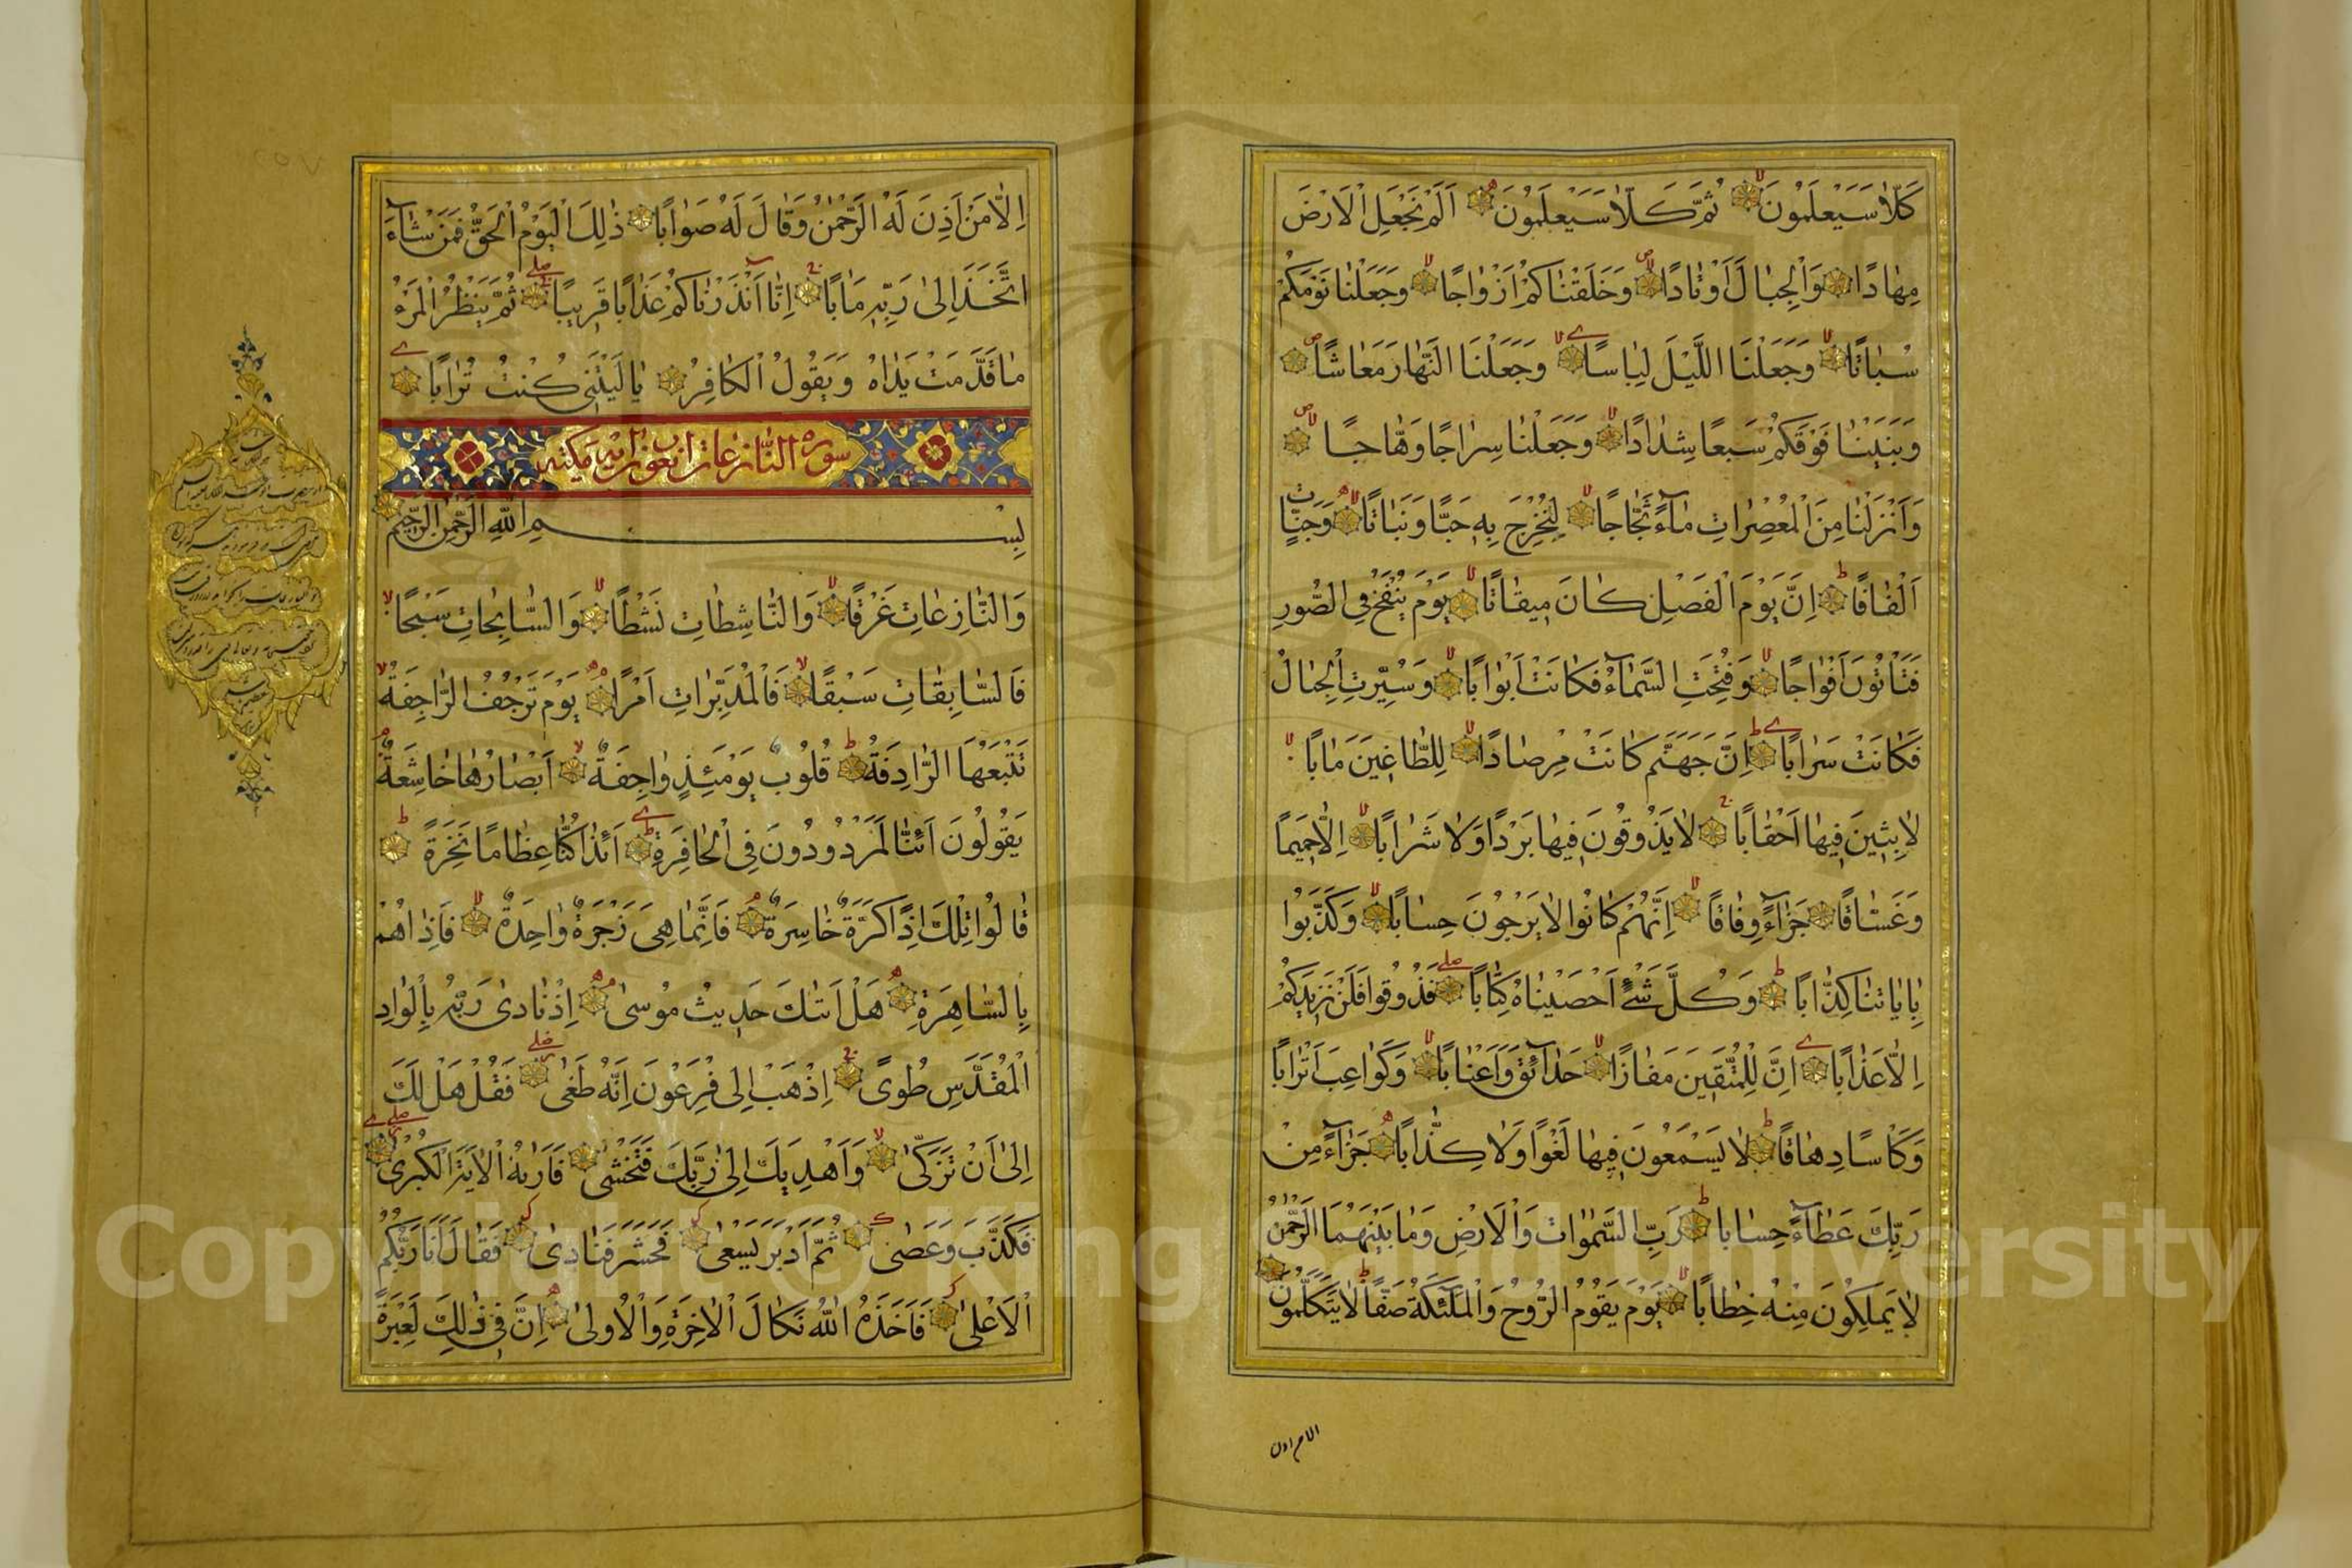 كَلَّا سَيَعْلَمُونَ ثُمَّ كَلَّا سَيَعْلَمُونَ اَلَمْ نَجْعَلِ الْاَرْضَ
مِهَادًا وَالْجِبَالَ اَوْتَادًا وَخَلَقْنَاكُمْ اَزْوَاجًا وَجَعَلْنَا نَوْمَكُمْ
سُبَاتًا وَجَعَلْنَا اللَّيْلَ لِبَاسًا وَجَعَلْنَا النَّهَارَ مَعَاشًا
وَبَنَيْنَا فَوْقَكُمْ سَبْعًا شِدَادًا وَجَعَلْنَا سِرَاجًا وَهَّاجًا
وَاَنْزَلْنَا مِنَ الْمُعْصِرَاتِ مَاءً ثَجَّاجًا لِنُخْرِجَ بِهِ حَبًّا وَنَبَاتًا وَجَنَّاتٍ
اَلْفَافًا اِنَّ يَوْمَ الْفَصْلِ كَانَ مِيقَاتًا يَوْمَ يُنْفَخُ فِي الصُّورِ
فَتَأْتُونَ اَفْوَاجًا وَفُتِحَتِ السَّمَاءُ فَكَانَتْ اَبْوَابًا وَسُيِّرَتِ الْجِبَالُ
فَكَانَتْ سَرَابًا اِنَّ جَهَنَّمَ كَانَتْ مِرْصَادًا لِلطَّاغِينَ مَاٰبًا
لَابِثِينَ فِيهَا اَحْقَابًا لَا يَذُوقُونَ فِيهَا بَرْدًا وَلَا شَرَابًا اِلَّا حَمِيمًا
وَغَسَّاقًا جَزَاءً وِفَاقًا اِنَّهُمْ كَانُوا لَا يَرْجُونَ حِسَابًا وَكَذَّبُوا
بِاٰيَاتِنَا كِذَّابًا وَكُلَّ شَيْءٍ اَحْصَيْنَاهُ كِتَابًا فَذُوقُوا فَلَنْ نَزِيدَكُمْ
اِلَّا عَذَابًا اِنَّ لِلْمُتَّقِينَ مَفَازًا حَدَائِقَ وَاَعْنَابًا وَكَوَاعِبَ اَتْرَابًا
وَكَأْسًا دِهَاقًا لَا يَسْمَعُونَ فِيهَا لَغْوًا وَلَا كِذَّابًا جَزَاءً مِنْ
رَبِّكَ عَطَاءً حِسَابًا رَبِّ السَّمٰوَاتِ وَالْاَرْضِ وَمَا بَيْنَهُمَا الرَّحْمٰنُ
لَا يَمْلِكُونَ مِنْهُ خِطَابًا يَوْمَ يَقُومُ الرُّوحُ وَالْمَلٰئِكَةُ صَفًّا لَا يَتَكَلَّمُونَ
الا من اذن
اِلَّا مَنْ اَذِنَ لَهُ الرَّحْمٰنُ وَقَالَ لَهُ صَوَابًا ذٰلِكَ الْيَوْمُ الْحَقُّ فَمَنْ شَاءَ
اتَّخَذَ اِلىٰ رَبِّهِ مَاٰبًا اِنَّا اَنْذَرْنَاكُمْ عَذَابًا قَرِيبًا ثُمَّ يَنْظُرُ الْمَرْءُ
مَا قَدَّمَتْ يَدَاهُ وَيَقُولُ الْكَافِرُ يَا لَيْتَنِي كُنْتُ تُرَابًا
سورة النازعات اربعون آية مكية
بِسْمِ اللّٰهِ الرَّحْمٰنِ الرَّحِيمِ
وَالنَّازِعَاتِ غَرْقًا وَالنَّاشِطَاتِ نَشْطًا وَالسَّابِحَاتِ سَبْحًا
فَالسَّابِقَاتِ سَبْقًا فَالْمُدَبِّرَاتِ اَمْرًا يَوْمَ تَرْجُفُ الرَّاجِفَةُ
تَتْبَعُهَا الرَّادِفَةُ قُلُوبٌ يَوْمَئِذٍ وَاجِفَةٌ اَبْصَارُهَا خَاشِعَةٌ
يَقُولُونَ اَئِنَّا لَمَرْدُودُونَ فِي الْحَافِرَةِ اَئِذَا كُنَّا عِظَامًا نَخِرَةً
قَالُوا تِلْكَ اِذًا كَرَّةٌ خَاسِرَةٌ فَاِنَّمَا هِيَ زَجْرَةٌ وَاحِدَةٌ فَاِذَا هُمْ
بِالسَّاهِرَةِ هَلْ اَتٰىكَ حَدِيثُ مُوسىٰ اِذْ نَادىٰ رَبُّهُ بِالْوَادِ
الْمُقَدَّسِ طُوىً اِذْهَبْ اِلىٰ فِرْعَوْنَ اِنَّهُ طَغىٰ فَقُلْ هَلْ لَكَ
اِلىٰ اَنْ تَزَكّىٰ وَاَهْدِيَكَ اِلىٰ رَبِّكَ فَتَخْشىٰ فَاَرٰيهُ الْاٰيَةَ الْكُبْرىٰ
فَكَذَّبَ وَعَصىٰ ثُمَّ اَدْبَرَ يَسْعىٰ فَحَشَرَ فَنَادىٰ فَقَالَ اَنَا رَبُّكُمُ
الْاَعْلىٰ فَاَخَذَهُ اللّٰهُ نَكَالَ الْاٰخِرَةِ وَالْاُولىٰ اِنَّ فِي ذٰلِكَ لَعِبْرَةً
Copyright © King Saud University